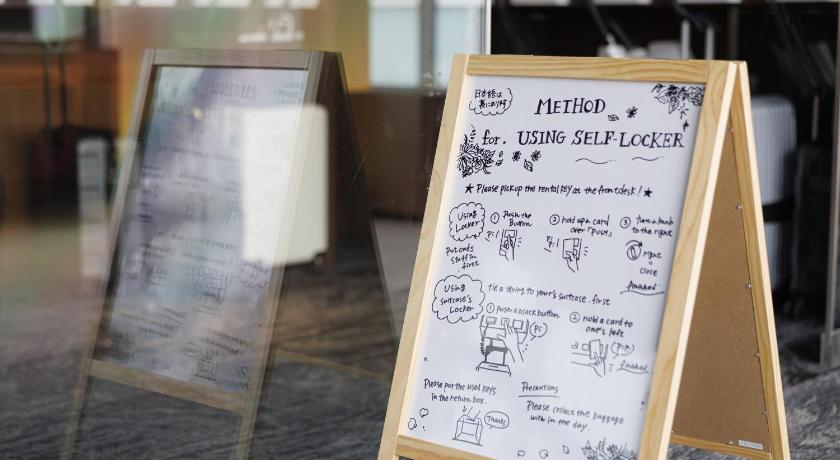 日本語は
裏にあります
METHOD
for. USING SELF-LOCKER
★ Please pickup the rental key at the frontdesk! ★
Using Locker
Put one's
stuff in
first.
① Push the
Button
Pi!
② hold up a card
over "Push"
Pi!
③ turn a knob
to the right
right
=
close
finished
Using
suitcase's
Locker
tie a string to your's suitcase. first
① push a black button
Pi
② hold a card to
one's left
finished
Please put the used keys
in the return box.
Thanks
Precautions
Please collect the baggage
with in the day.